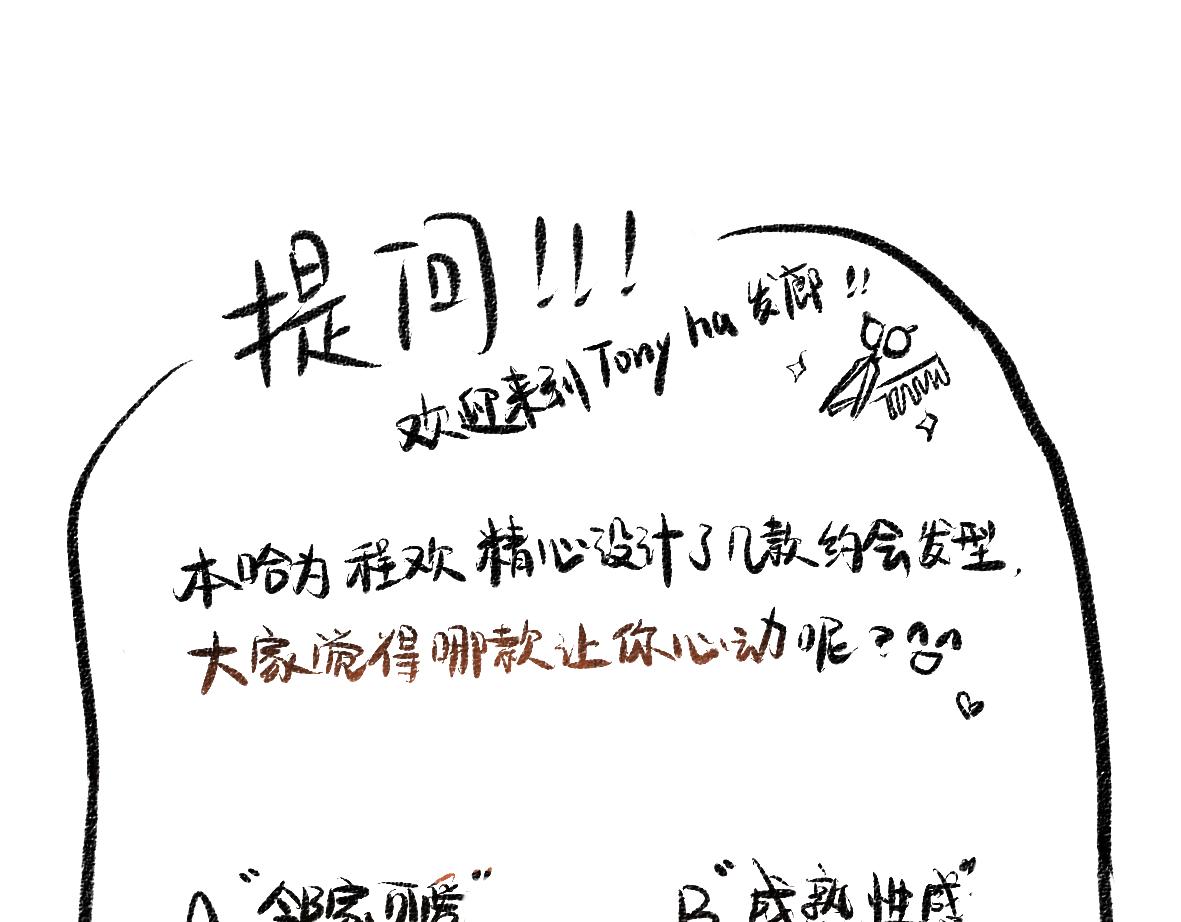 提问!!!
欢迎来到Tony ha发廊!!
本哈为程欢精心设计了几款约会发型,
大家觉得哪款让你心动呢?
A "邻家可爱"
B "成熟性感"